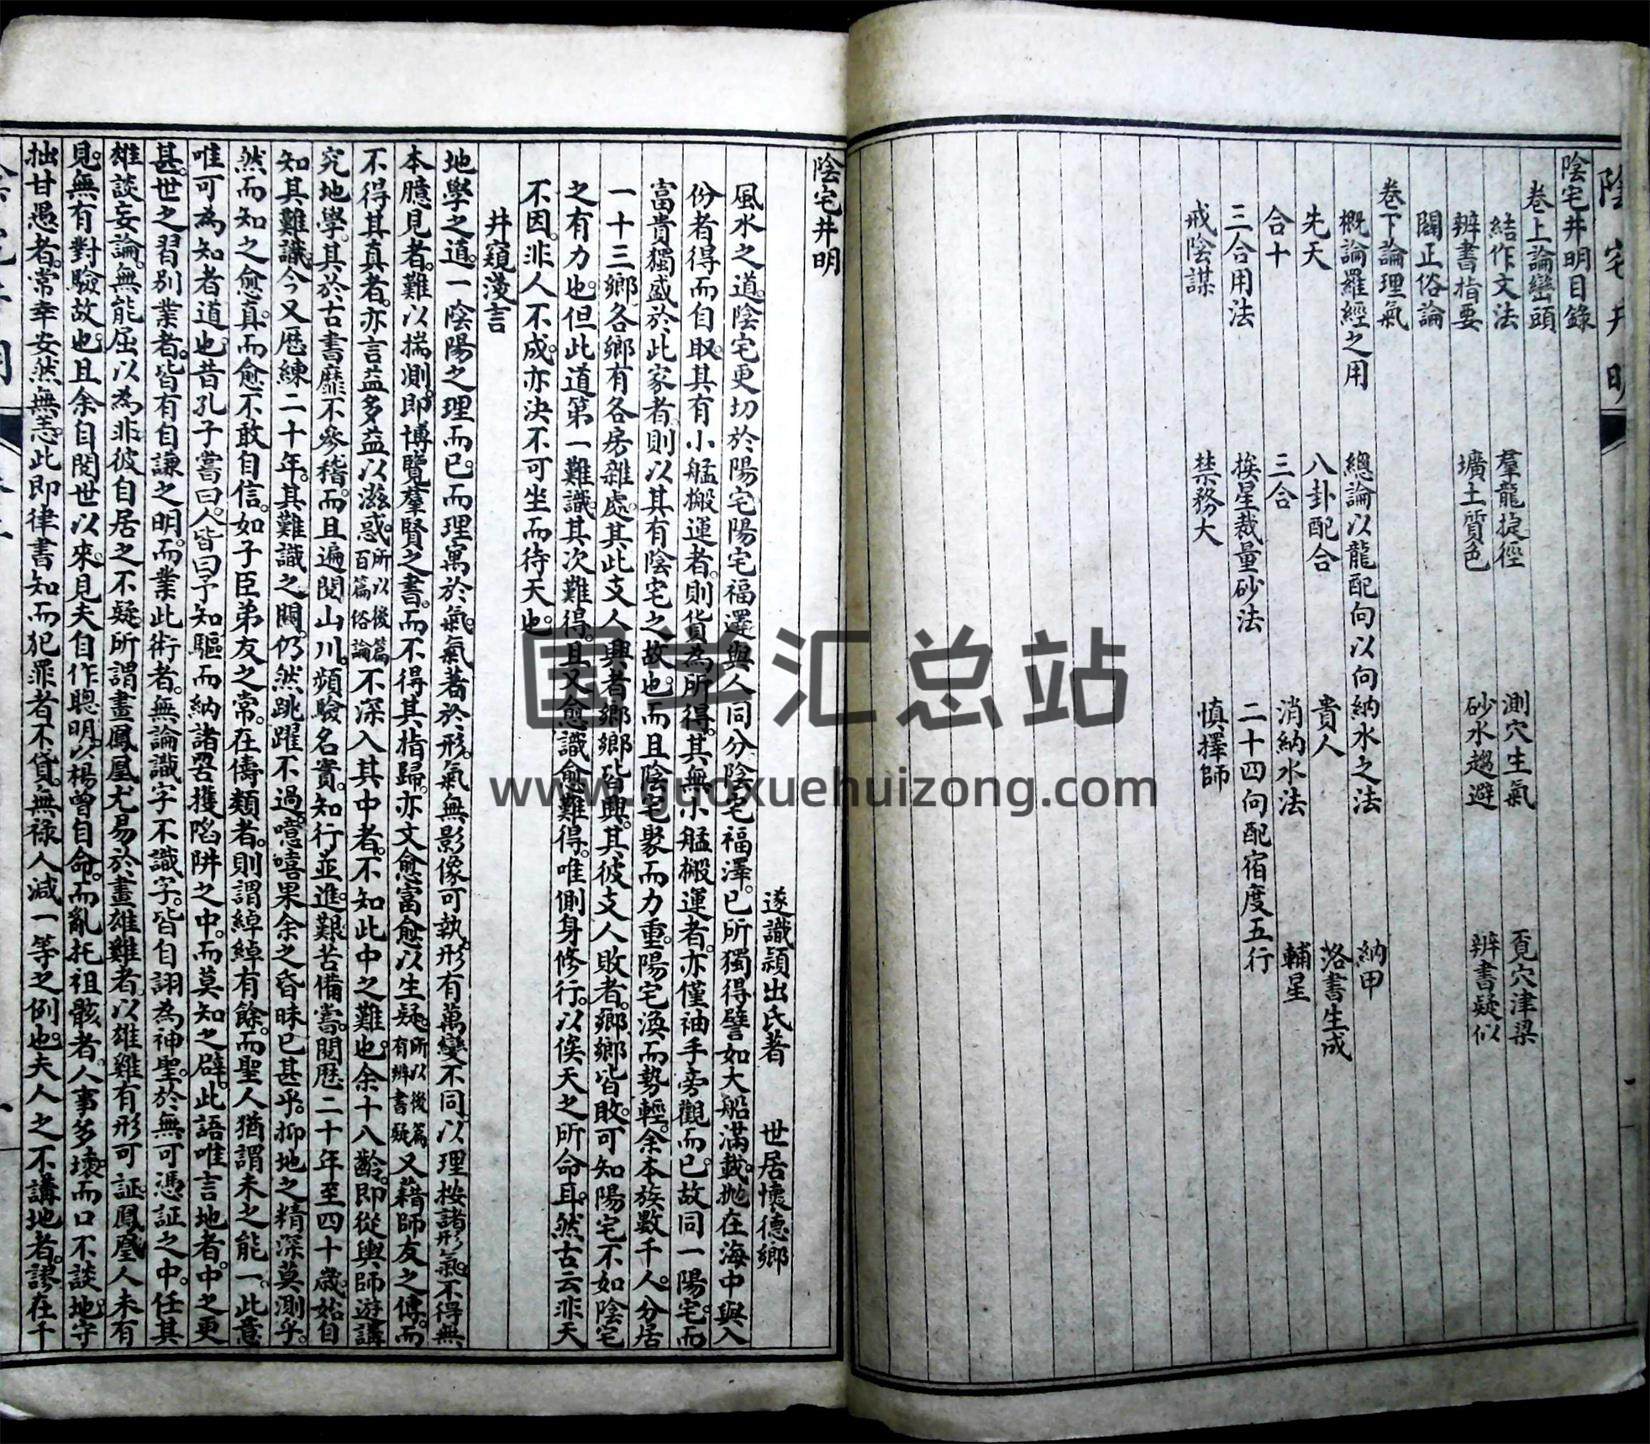 陰宅井明
陰宅井明目錄
卷上論巒頭
結作文法 羣龍捷徑 測穴生氣 覓穴津梁
辨書指要 壙土質色 砂水趨避 辨書疑似
闢正俗論
卷下論理氣
概論羅經之用 總論以龍配向以向納水之法 納甲
先天 八卦配合 貴人 洛書生成
合十 三合 消納水法 輔星
三合用法 挨星裁量砂法 二十四向配宿度五行
戒陰謀 禁務大 慎擇師
陰宅井明
遂識穎出氏著 世居懷德鄉
風水之道。陰宅更切於陽宅。陽宅福澤與人同分。陰宅福澤。已所獨得。譬如大船滿載。拋在海中。與入
份者得而自取。其有小艋搬運者。則貨為所得。其無小艋搬運者。亦僅袖手旁觀而已。故同一陽宅。而
富貴獨盛於此家者。則以其有陰宅之故也。而且陰宅聚而力重。陽宅渙而勢輕。余本族數千人。分居
一十三鄉。各鄉有各房雜處。其此支人興者。鄉鄉皆興。其彼支人敗者。鄉鄉皆敗。可知陽宅不如陰宅
之有力也。但此道第一難識。其次難得。且又愈識愈難得。唯側身修行。以俟天之所命耳。然古云非天
不因。非人不成。亦決不可坐而待天也。
井窺淺言
地學之道。一陰陽之理而已。而理寓於氣。氣著於形。氣無影像可執。形有萬變不同。以理按諸形氣。不得無
本臆見者。難以揣測。即博覽羣賢之書。而不得其指歸。亦文愈富愈以生疑。所以後篇有辨書疑又藉師友之傳。而
不得其真者。亦言益多益以滋惑。所以後篇百篇俗論不深入其中者。不知此中之難也。余十八齡。即從輿師遊講
究地學。其於古書靡不參稽。而且遍閱山川。頻驗名實。知行並進。艱苦備嘗。閱歷二十年。至四十歲。始自
知其難識。今又歷練二十年。其難識之關。仍然跳躍不過。噫嘻果余之昏昧已甚乎。抑地之精深莫測乎。
然而知之愈真。而愈不敢自信。如子臣弟友之常。在儔類者。則謂綽綽有餘。而聖人猶謂未之能一。此意
唯可為知者道也。昔孔子嘗曰。人皆曰予知。驅而納諸罟擭陷阱之中。而莫知之辟。此語唯言地者。中之更
甚。世之習別業者。皆有自謙之明。而業此術者。無論識字不識字。皆自詡為神聖。於無可憑証之中。任其
雄談妄論。無能屈以為非。彼自居之不疑。所謂畫鳳凰尤易於畫雄雞者。以雄雞有形可証。鳳凰人未有
見。無有對驗故也。且余自閱世以來。見夫自作聰明。以楊曾自命。而亂托祖骸者。人事多壞。而口不談地。守
拙甘愚者。常幸安然無恙。此即律書知而犯罪者不貸。無祿人減一等之例也。夫人之不講地者。謬在千
国学汇总站
www.guoxuehuizong.com